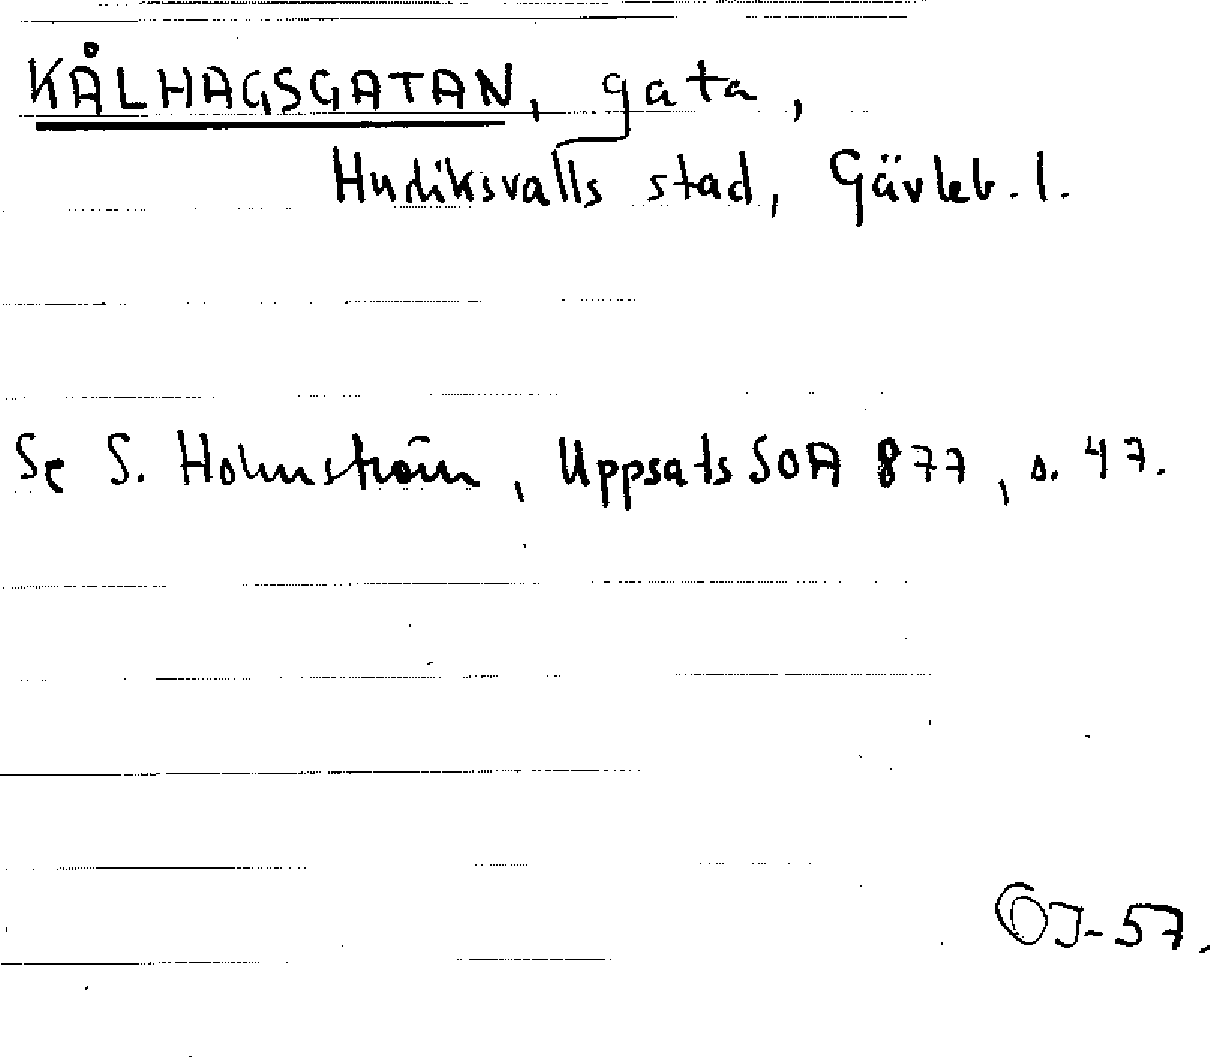 KÅLHAGSGATAN, gata,
Hudiksvalls stad, Gävleb. l.
Se S. Holmström, Uppsats SOA 877, s. 47.
OJ-57.